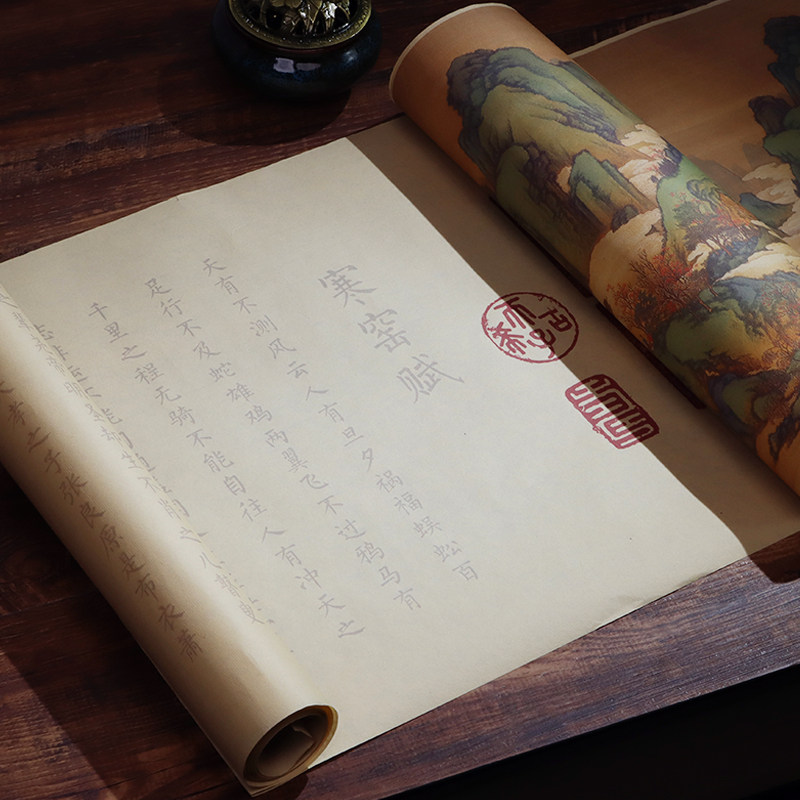 寒窑赋
天有不测风云人有旦夕祸福蜈蚣百
足行不及蛇雄鸡两翼飞不过鸦马有
千里之程无骑不能自往人有冲天之
孝之子张良原是布衣萧